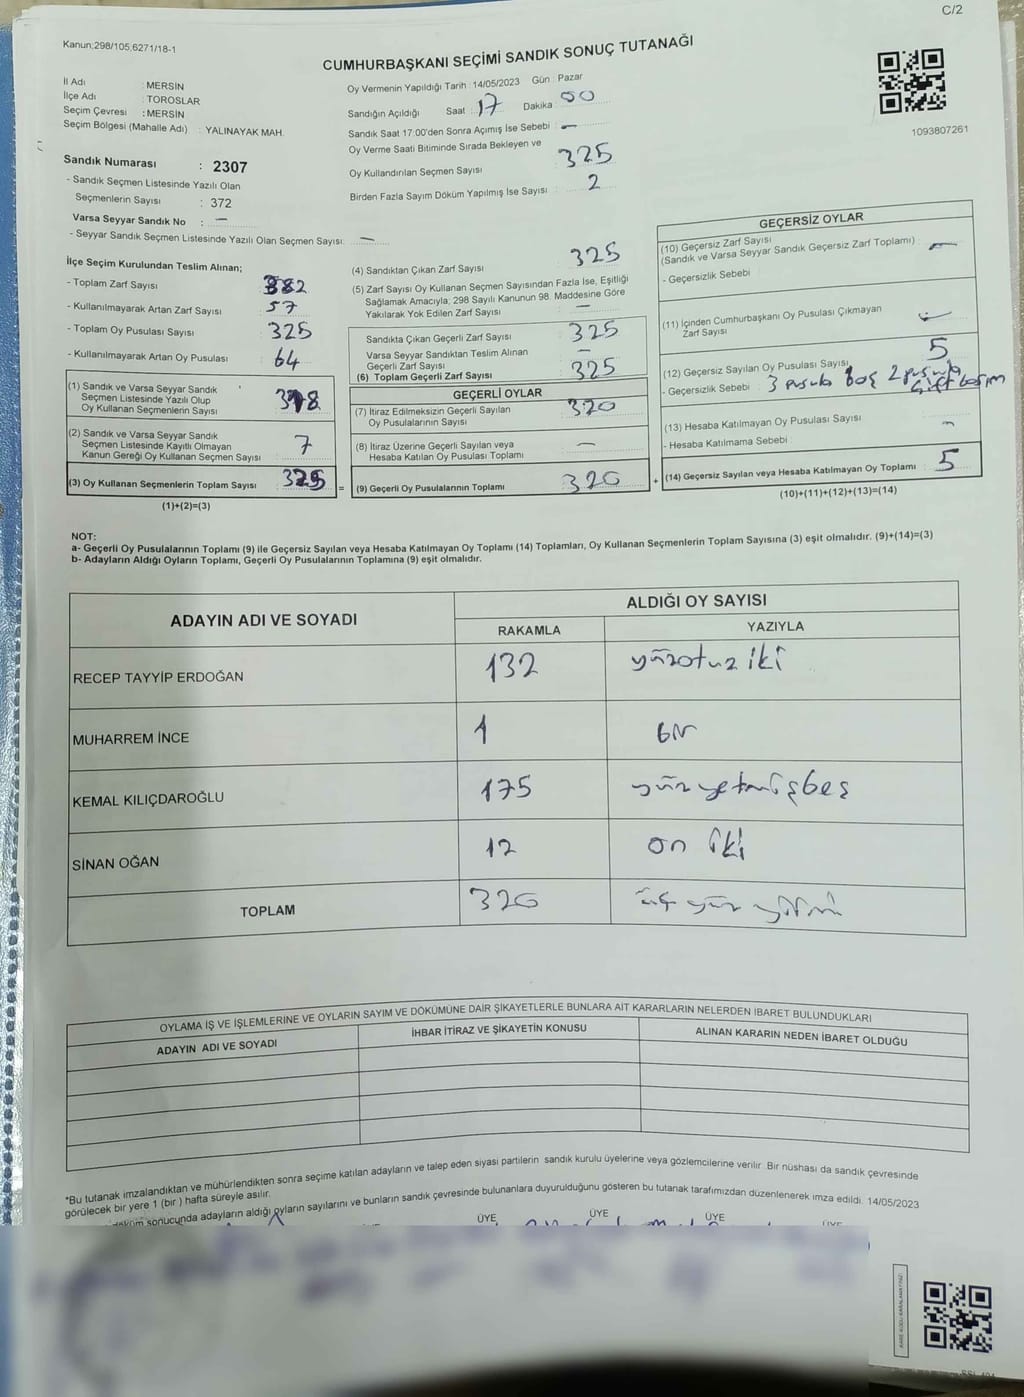 C/2
Kanun;298/105,6271/18-1
CUMHURBAŞKANI SEÇİMİ SANDIK SONUÇ TUTANAĞI
İl Adı : MERSİN
İlçe Adı : TOROSLAR
Seçim Çevresi : MERSİN
Seçim Bölgesi (Mahalle Adı) : YALINAYAK MAH.
Oy Vermenin Yapıldığı Tarih : 14/05/2023 Gün : Pazar
Sandığın Açıldığı Saat : 17 Dakika : 00
Sandık Saat 17:00'den Sonra Açımış İse Sebebi : —
Oy Verme Saati Bitiminde Sırada Bekleyen ve
Oy Kullandırılan Seçmen Sayısı 325
Birden Fazla Sayım Döküm Yapılmış İse Sayısı : 2
1093807261
Sandık Numarası : 2307
- Sandık Seçmen Listesinde Yazılı Olan
Seçmenlerin Sayısı : 372
Varsa Seyyar Sandık No : —
- Seyyar Sandık Seçmen Listesinde Yazılı Olan Seçmen Sayısı: —
İlçe Seçim Kurulundan Teslim Alınan;
- Toplam Zarf Sayısı : 382
- Kullanılmayarak Artan Zarf Sayısı : 57
- Toplam Oy Pusulası Sayısı : 325
- Kullanılmayarak Artan Oy Pusulası : 64
(1) Sandık ve Varsa Seyyar Sandık
Seçmen Listesinde Yazılı Olup
Oy Kullanan Seçmenlerin Sayısı 318
(2) Sandık ve Varsa Seyyar Sandık
Seçmen Listesinde Kayıtlı Olmayan
Kanun Gereği Oy Kullanan Seçmen Sayısı : 7
(3) Oy Kullanan Seçmenlerin Toplam Sayısı 325 =
(1)+(2)=(3)
(4) Sandıktan Çıkan Zarf Sayısı 325
(5) Zarf Sayısı Oy Kullanan Seçmen Sayısından Fazla İse, Eşitliği
Sağlamak Amacıyla; 298 Sayılı Kanunun 98. Maddesine Göre
Yakılarak Yok Edilen Zarf Sayısı : —
Sandıkta Çıkan Geçerli Zarf Sayısı : 325
Varsa Seyyar Sandıktan Teslim Alınan
Geçerli Zarf Sayısı : —
(6) Toplam Geçerli Zarf Sayısı : 325
GEÇERLİ OYLAR
(7) İtiraz Edilmeksizin Geçerli Sayılan
Oy Pusulasının Sayısı : 320
(8) İtiraz Üzerine Geçerli Sayılan veya
Hesaba Katılan Oy Pusulası Toplamı : —
(9) Geçerli Oy Pusulalarının Toplamı : 320 +
GEÇERSİZ OYLAR
(10) Geçersiz Zarf Sayısı
(Sandık ve Varsa Seyyar Sandık Geçersiz Zarf Toplamı) : —
- Geçersizlik Sebebi :
(11) İçinden Cumhurbaşkanı Oy Pusulası Çıkmayan
Zarf Sayısı : —
(12) Geçersiz Sayılan Oy Pusulası Sayısı : 5
- Geçersizlik Sebebi : 3 pusula boş 2 pusula
çift basım
(13) Hesaba Katılmayan Oy Pusulası Sayısı : —
- Hesaba Katılmama Sebebi :
(14) Geçersiz Sayılan veya Hesaba Katılmayan Oy Toplamı : 5
(10)+(11)+(12)+(13)=(14)
NOT:
a- Geçerli Oy Pusulalarının Toplamı (9) ile Geçersiz Sayılan veya Hesaba Katılmayan Oy Toplamı (14) Toplamları, Oy Kullanan Seçmenlerin Toplam Sayısına (3) eşit olmalıdır. (9)+(14)=(3)
b- Adayların Aldığı Oyların Toplamı, Geçerli Oy Pusulalarının Toplamına (9) eşit olmalıdır.
ADAYIN ADI VE SOYADI
ALDIĞI OY SAYISI
RAKAMLA YAZIYLA
RECEP TAYYİP ERDOĞAN 132 yüzotuz iki
MUHARREM İNCE 1 bir
KEMAL KILIÇDAROĞLU 175 yüzyetmişbeş
SİNAN OĞAN 12 on iki
TOPLAM 320 üç yüz yirmi
OYLAMA İŞ VE İŞLEMLERİNE VE OYLARIN SAYIM VE DÖKÜMÜNE DAİR ŞİKAYETLERLE BUNLARA AİT KARARLARIN NELERDEN İBARET BULUNDUKLARI
ADAYIN ADI VE SOYADI İHBAR İTİRAZ VE ŞİKAYETİN KONUSU ALINAN KARARIN NEDEN İBARET OLDUĞU
*Bu tutanak imzalandıktan ve mühürlendikten sonra seçime katılan adayların ve talep eden siyasi partilerin sandık kurulu üyelerine veya gözlemcilerine verilir. Bir nüshası da sandık çevresinde
görülecek bir yere 1 (bir ) hafta süreyle asılır.
döküm sonucunda adayların aldığı oyların sayılarını ve bunların sandık çevresinde bulunanlara duyurulduğunu gösteren bu tutanak tarafımızdan düzenlenerek imza edildi. 14/05/2023
ÜYE ÜYE ÜYE ÜYE